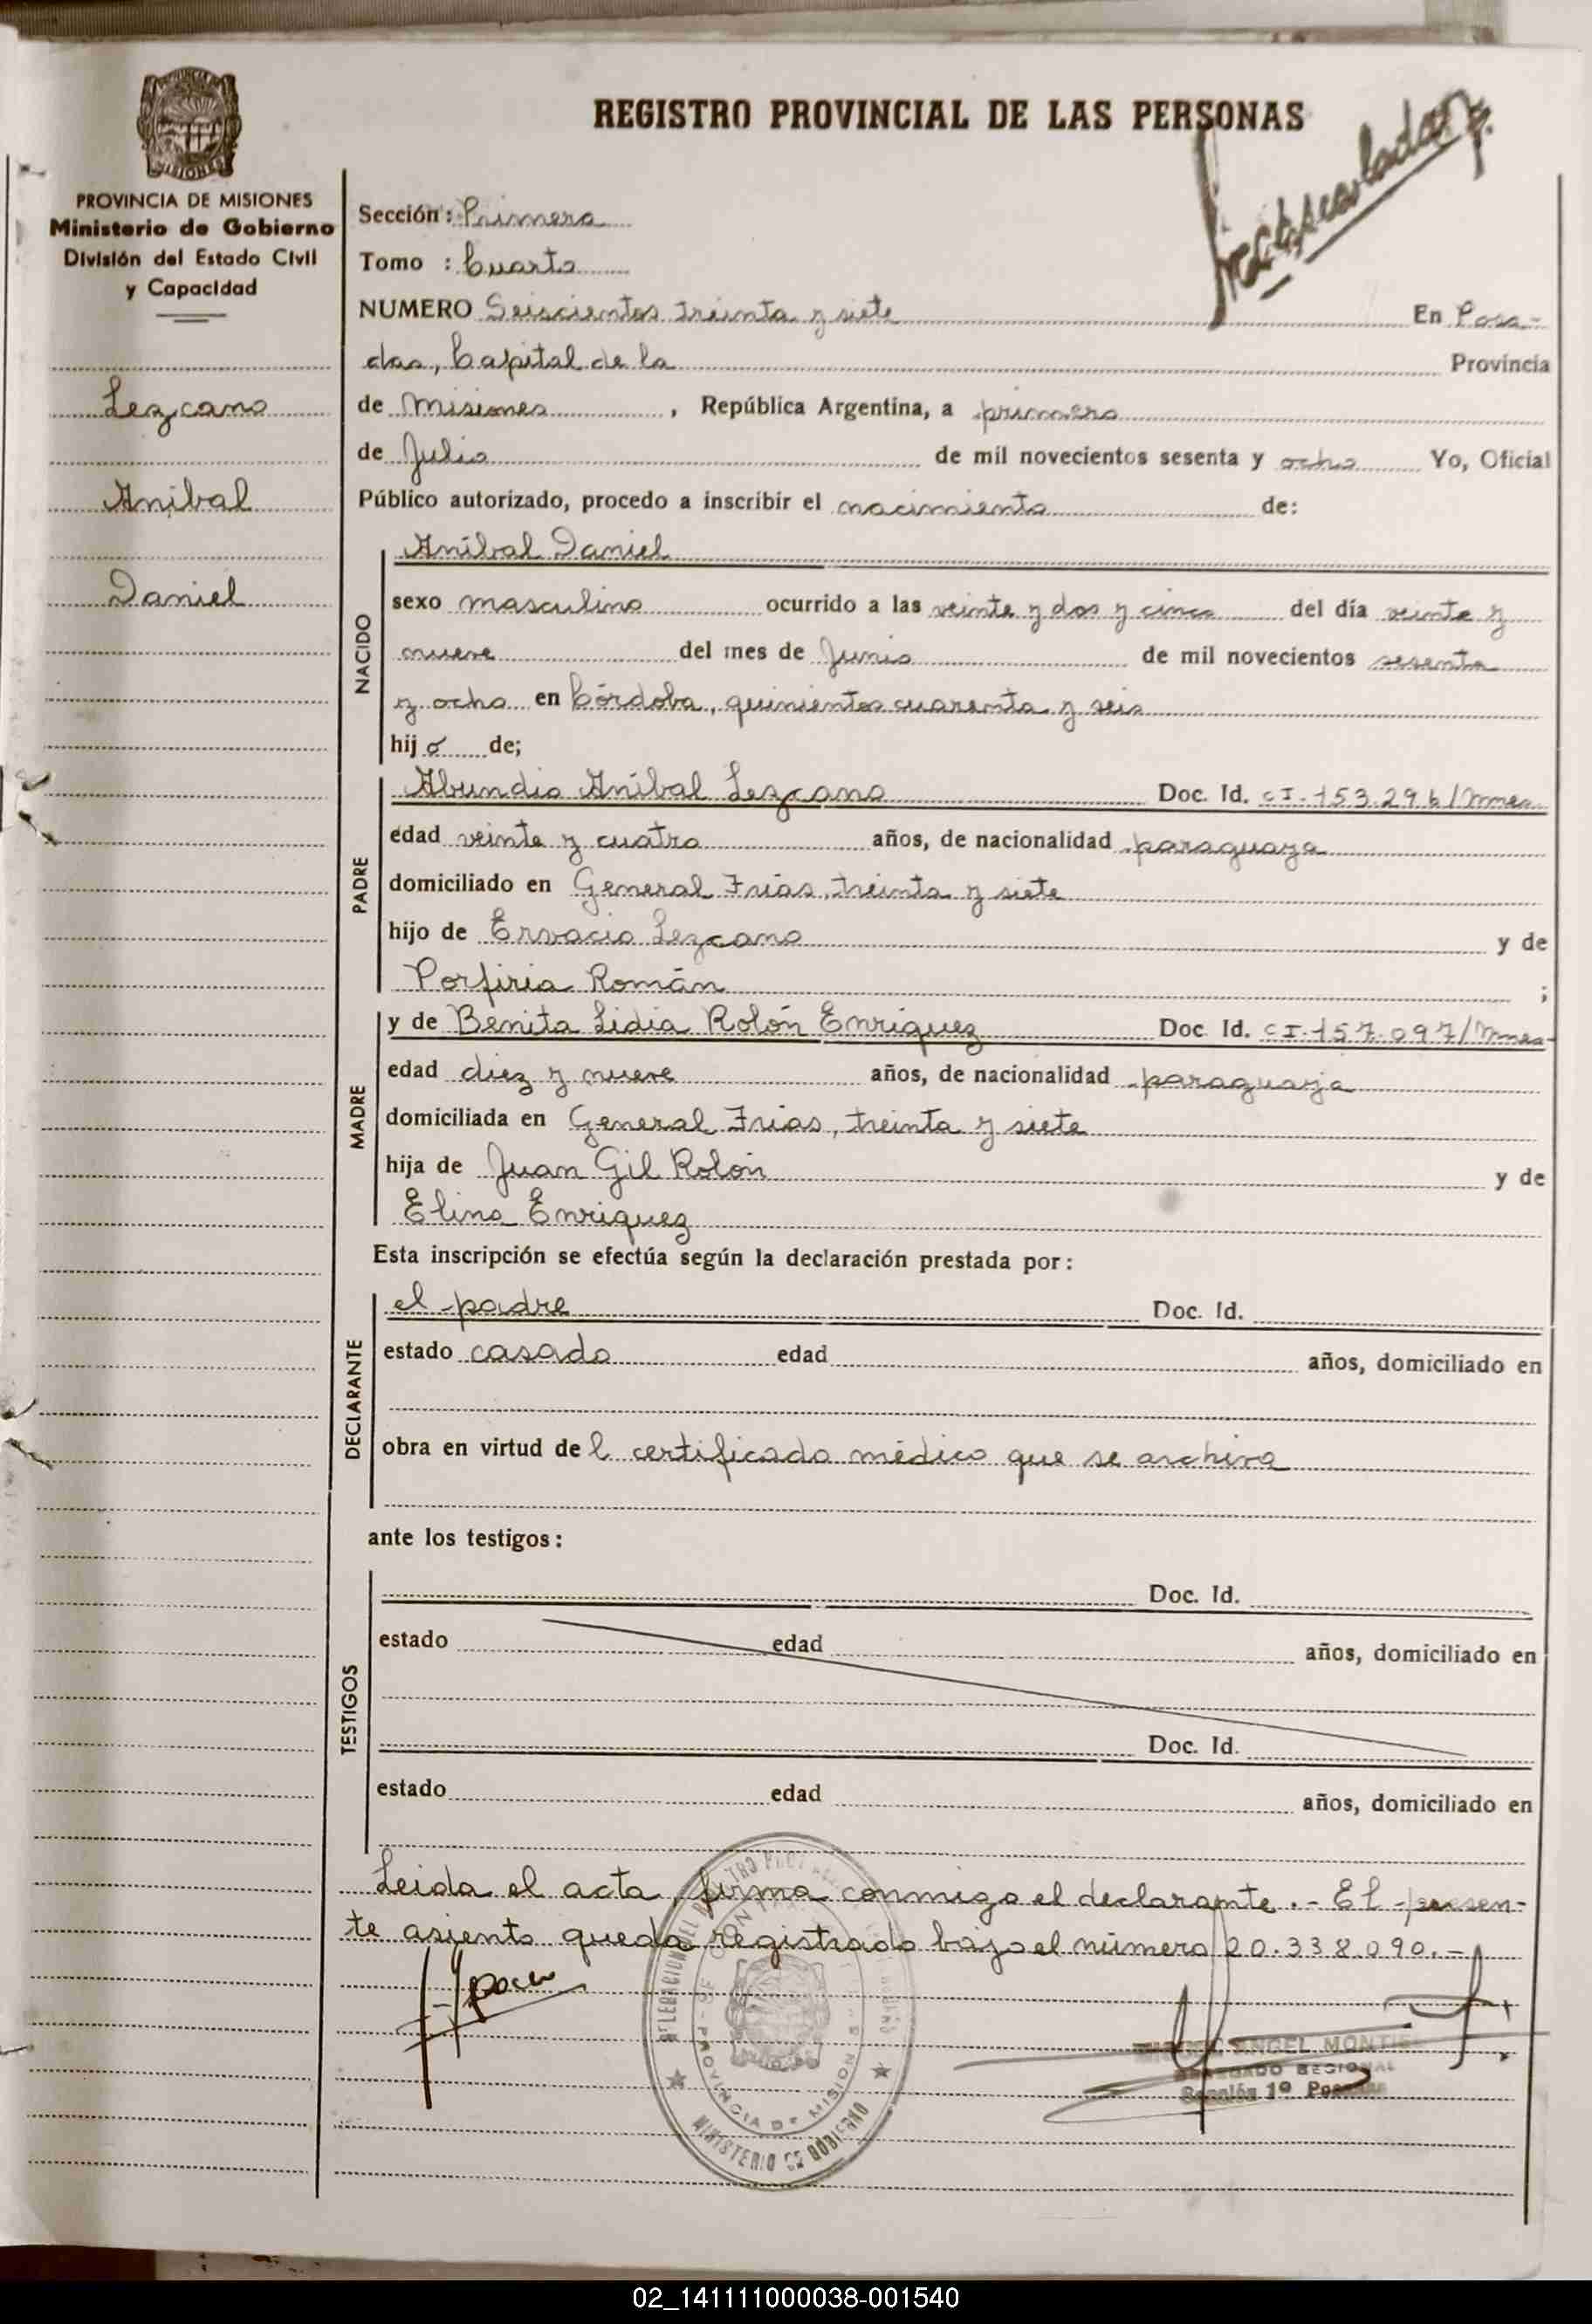 REGISTRO PROVINCIAL DE LAS PERSONAS
PROVINCIA DE MISIONES
Ministerio de Gobierno
División del Estado Civil
y Capacidad
Lezcano
Anibal
Daniel
Sección: Primera
Tomo : Cuarto
NUMERO Seiscientos treinta y siete En Posa-
das, Capital de la Provincia
de Misiones, República Argentina, a primero
de Julio de mil novecientos sesenta y ocho Yo, Oficial
Público autorizado, procedo a inscribir el nacimiento de:
NACIDO
Anibal Daniel
sexo masculino ocurrido a las veinte y dos y cinco del día veinte y
nueve del mes de Junio de mil novecientos sesenta
y ocho en Córdoba, quinientos cuarenta y seis
hij o de;
PADRE
Abundio Anibal Lezcano Doc. Id. CI.153.296/Mnes
edad veinte y cuatro años, de nacionalidad paraguaya
domiciliado en General Frias, treinta y siete
hijo de Ervacio Lezcano y de
Porfiria Román ;
MADRE
y de Benita Lidia Rolón Enriquez Doc Id. CI.157.097/Mnes-
edad diez y nueve años, de nacionalidad paraguaya
domiciliada en General Frias, treinta y siete
hija de Juan Gil Rolón y de
Elina Enriquez
Esta inscripción se efectúa según la declaración prestada por:
DECLARANTE
el padre Doc. Id.
estado casado edad años, domiciliado en
obra en virtud de l certificado médico que se archiva
ante los testigos:
TESTIGOS
Doc. Id.
estado edad años, domiciliado en
Doc. Id.
estado edad años, domiciliado en
Leida el acta, firma conmigo el declarante.- El presen-
te asiento queda registrado bajo el número 20.338.090.-
ANGEL MONTIEL
REGIONAL
Sección 1º
PROVINCIA DE MISIONES
MINISTERIO DE GOBIERNO
02_141111000038-001540